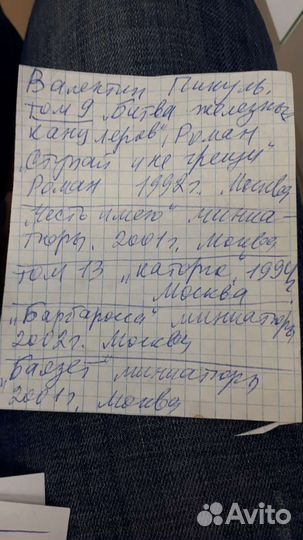 Валентин Пикуль.
том 9 „Битва железных
канцлеров", Роман
„Ступай и не греши"
Роман 1992г. Москва
„Честь имею" миниа-
тюры. 2001г. Москва
том 13 „каторга", 1994г
Москва
„Барбаросса" миниатюры
2002г. Москва
„Баязет" миниатюры
2001г, Москва
Avito